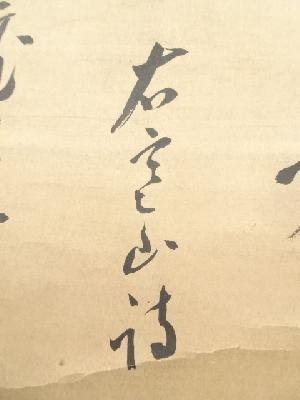 右寒山詩